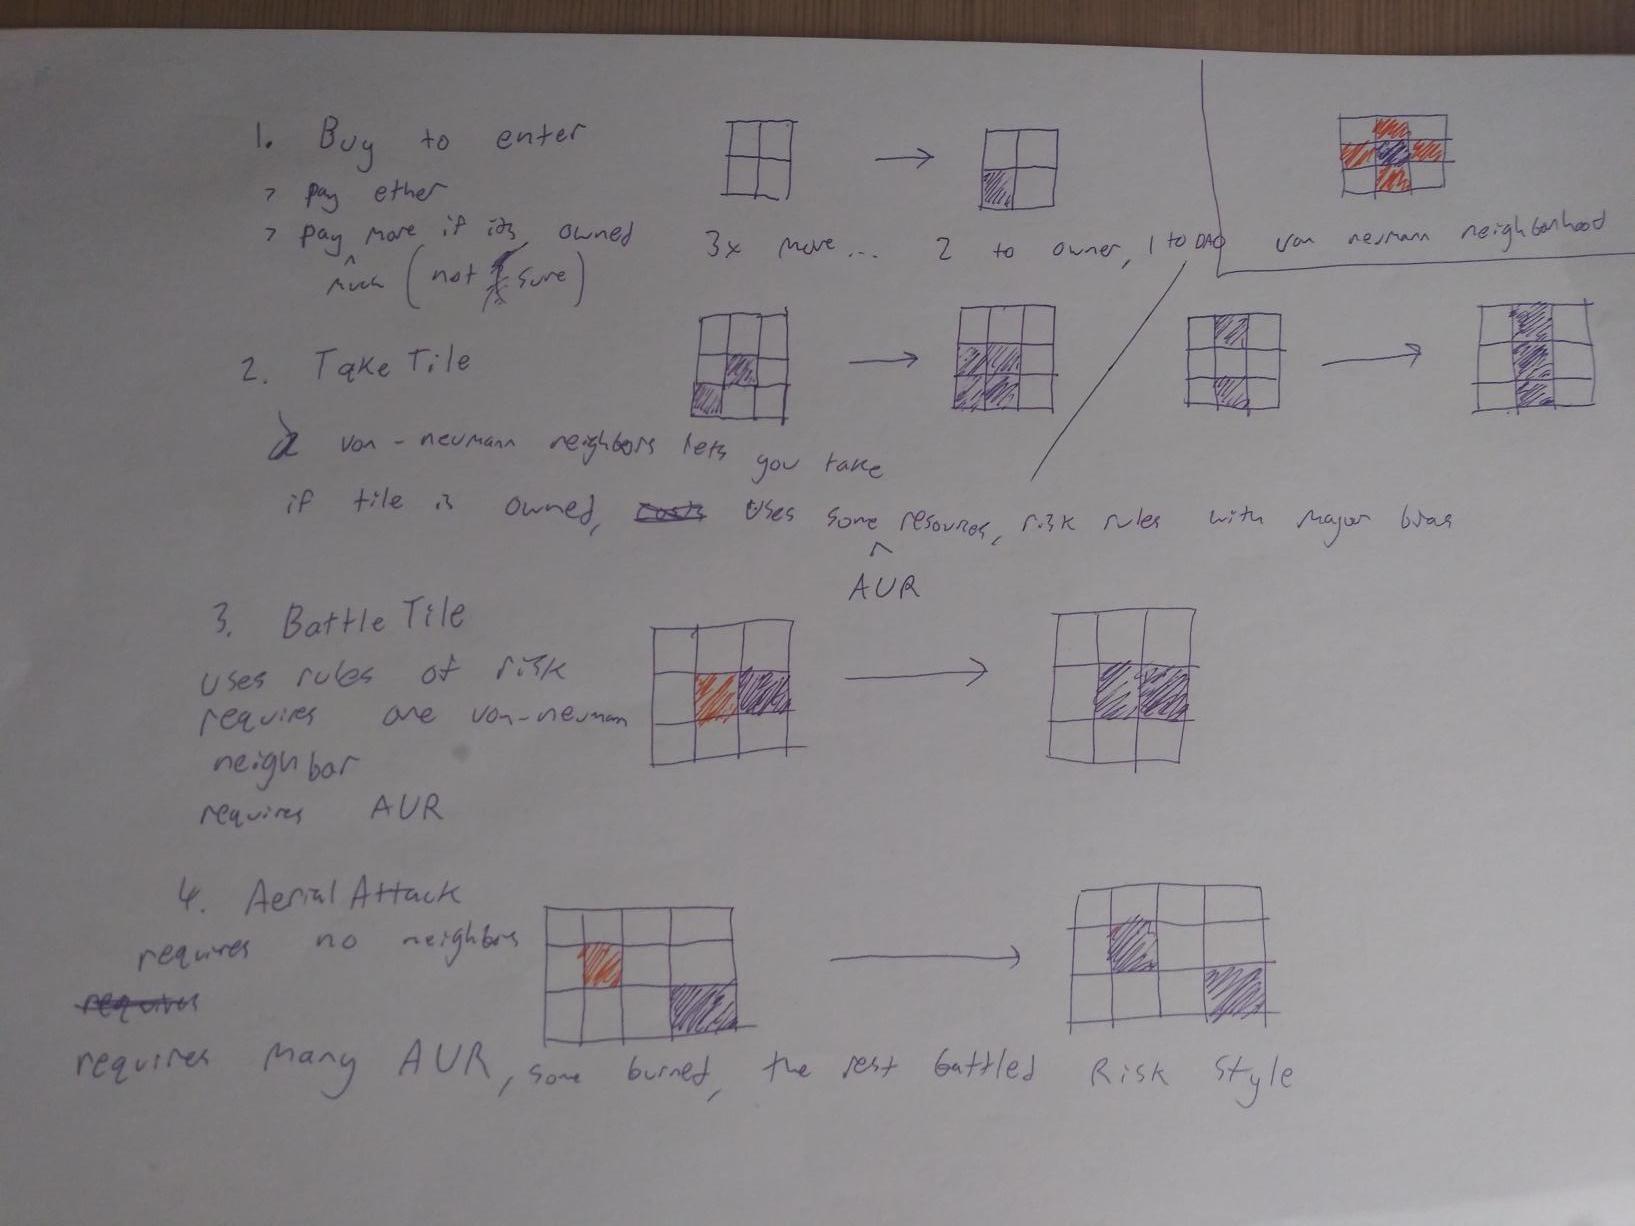 1. Buy to enter
> pay ether
> pay more if its owned
^
much (not sure)
3x more... 2 to owner, 1 to DAO
von neumann neighborhood
2. Take Tile
2 von-neumann neighbors lets you take
if tile is owned, costs Uses some resources, risk rules with major bias
^
AUR
3. Battle Tile
uses rules of risk
requires one von-neuman
neighbor
requires AUR
4. Aerial Attack
requires no neighbors
requires
requires many AUR, some burned, the rest battled Risk Style